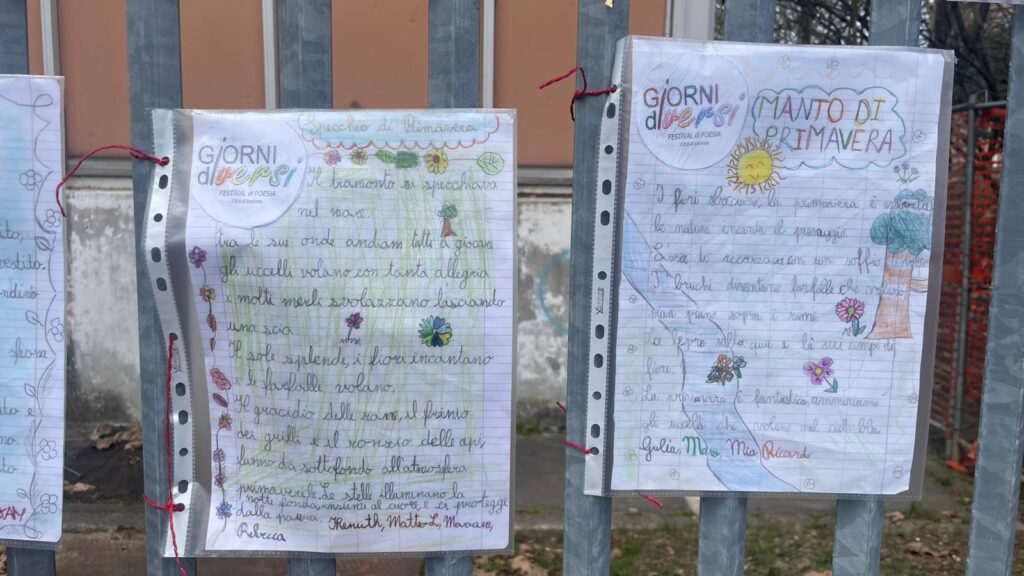 vestito.
GiORNI
diversi
FESTIVAL di POESIA
Città di Saronno
Specchio di Primavera
Il tramonto si specchiava
nel mare
tra le sue onde andiam tutti a giocare
gli uccelli volano con tanta allegria
i molti merli svolazzano lasciando
una scia.
Il sole splende, i fiori incantano
e le farfalle volano,
Il gracidio delle rane, il frinio
dei grilli e il ronzio delle api,
fanno da sottofondo all'atmosfera
primaverile. Le stelle illuminano la
notte fonda, insieme al cuore, e ci protegge
dalla paura.
Matteo L, Mariam,
Rebecca
GiORNI
diversi
FESTIVAL di POESIA
Città di Saronno
MANTO DI
PRIMAVERA
I fiori sbocciano, la primavera è
la natura incanta il paesaggio.
ti accarezza con un soffio
I bruchi diventano farfalle che
pian piano sopra i rami.
la lepre salta qua e là sui campi di
fiori,
la primavera è fantastica, ammiriamo
gli uccelli che volano nel cielo blu.
Giulia, Mia, Riccardo